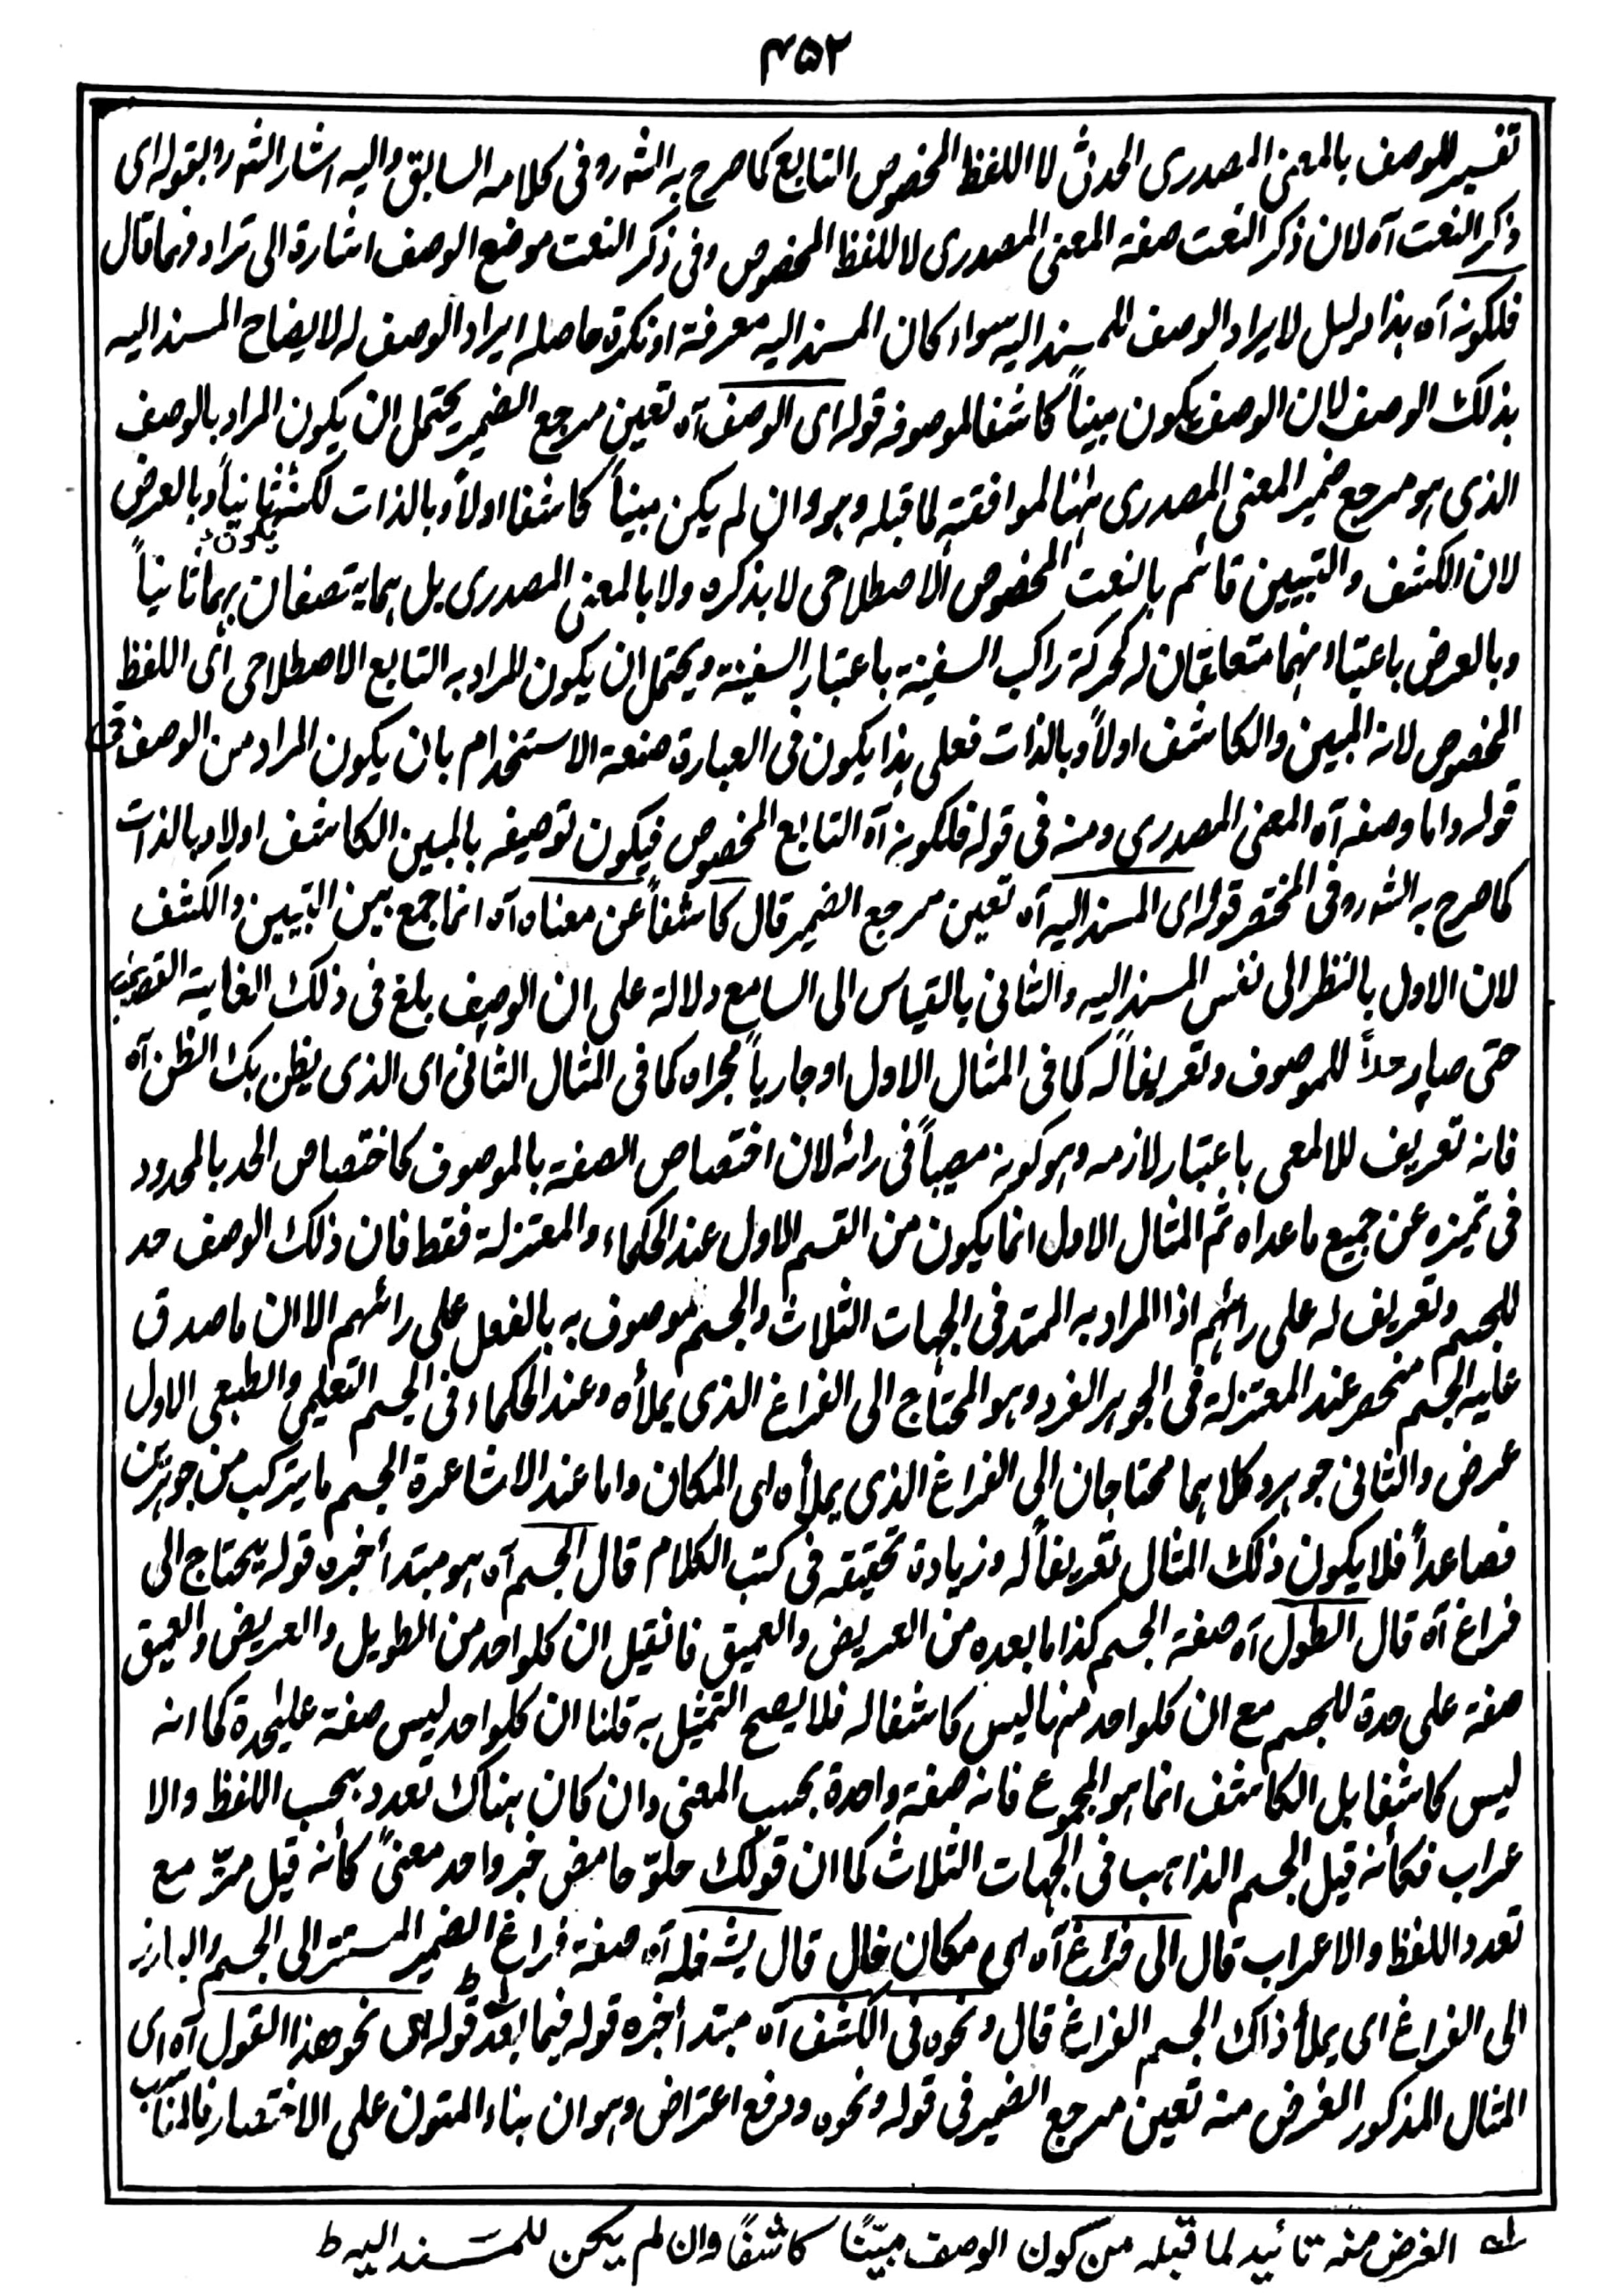 ۴۵۲
تفسیر للوصف بالمعنی المصدری الحدثی لا اللفظ المخصوص التابع کما صرح به الشه رو فی کلامه السابق والیه اشار الشه رو بقوله ای
ذکر النعت آه لان ذکر النعت صفة المعنی المصدری لا للفظ المخصوص وفی ذکر النعت موضع الوصف اشارة الی ترادفهما قال
فلکونه آه هذا دلیل لایراد الوصف للمسند الیه سواء کان المسند الیه معرفة او نکرة حاصله ایراد الوصف له لایضاح المسند الیه
بذلک الوصف لان الوصف یکون مبیناً کاشفا لموصوفه قوله ای الوصف آه تعین مرجع الضمیر یحتمل ان یکون المراد بالوصف
الذی هو مرجع ضمیر المعنی المصدری ههنا لموافقته لما قبله وهو وان لم یکن مبیناً کاشفا اولاً وبالذات لکنه یکون ثانیاً وبالعرض
لان الکشف والتبیین قائم بالنعت المخصوص الاصطلاحی لا بذکره ولا بالمعنی المصدری بل هما یتصفان بهما ثانیاً
وبالعرض باعتبار انهما متعلقان له کحرکة راکب السفینة باعتبار السفینة ویحتمل ان یکون المراد به التابع الاصطلاحی ای اللفظ
المخصوص لانه المبین والکاشف اولاً وبالذات فعلی هذا یکون فی العبارة صنعة الاستخدام بان یکون المراد من الوصف فی
قوله واما وصفه آه المعنی المصدری ومنه فی قوله فلکونه آه التابع المخصوص فیکون توصیفه بالمبین الکاشف اولا وبالذات
کما صرح به الشه رو فی المختصر قوله ای المسند الیه آه تعین مرجع الضمیر قال کاشفاً عن معناه آه انما جمع بین التبیین والکشف
لان الاول بالنظر الی نفس المسند الیه والثانی بالقیاس الی السامع دلالة علی ان الوصف بلغ فی ذلک الغایة
حتی صار حداً للموصوف وتعریفاً له کما فی المثال الاول او جاریاً مجراه کما فی المثال الثانی ای الذی یظن بک الظن آه
فانه تعریف للالمعی باعتبار لازمه وهو کونه مصیباً فی رائه لان اختصاص الصفة بالموصوف کاختصاص الحد بالمحدود
فی تمیزه عن جمیع ماعداه ثم المثال الاول انما یکون من القسم الاول عند الحکماء والمعتزلة فقط فان ذلک الوصف حد
للجسم وتعریف له علی رائهم اذا المراد به الممتد فی الجهات الثلاث والجسم موصوف به بالفعل علی رائهم الا ان ما صدق
علیه الجسم منحصر عند المعتزلة فی الجوهر الفرد وهو المحتاج الی الفراغ الذی یملأه وعند الحکماء فی الجسم التعلیمی والطبعی الاول
عرض والثانی جوهر وکلاهما محتاجان الی الفراغ الذی یملأه ای المکان واما عند الاشاعرة الجسم ما یترکب من جوهرین
فصاعداً فلا یکون ذلک المثال تعریفاً له وزیادة تحقیقه فی کتب الکلام قال الجسم آه هو مبتدأ خبره قوله یحتاج الی
فراغ آه قال الطول آه صفة الجسم کذا ما بعده من العریض والعمیق فان قیل ان کلواحد من الطویل والعریض والعمیق
صفة علی حدة للجسم مع ان کلواحد منها لیس کاشفا له فلا یصح التمثیل به قلنا ان کلواحد لیس صفة علیحدة کما انه
لیس کاشفا بل الکاشف انما هو المجموع فانه صفة واحدة بحسب المعنی وان کان هناک تعدد بحسب اللفظ والا
عراب فکأنه قیل الجسم الذاهب فی الجهات الثلاث کما ان قولک حلوٌ حامض خبر واحد معنیً کأنه قیل مرٌّ مع
تعدد اللفظ والاعراب قال الی فراغ آه ای مکان خال قال یشغله آه صفة فراغ الضمیر المستتر الی الجسم والبارز
الی الفراغ ای یملأ ذاک الجسم الفراغ قال ونحوه فی الکشف آه مبتدأ خبره قوله فیما بعد قوله ای نحو هذا القول آه ای
المثال المذکور الغرض منه تعین مرجع الضمیر فی قوله ونحوه ودفع اعتراض وهو ان بناء المتون علی الاختصار فالمناسب
له الغرض منه تائید لما قبله من کون الوصف مبیّنًا کاشفًا وان لم یکن للمسند الیه ط